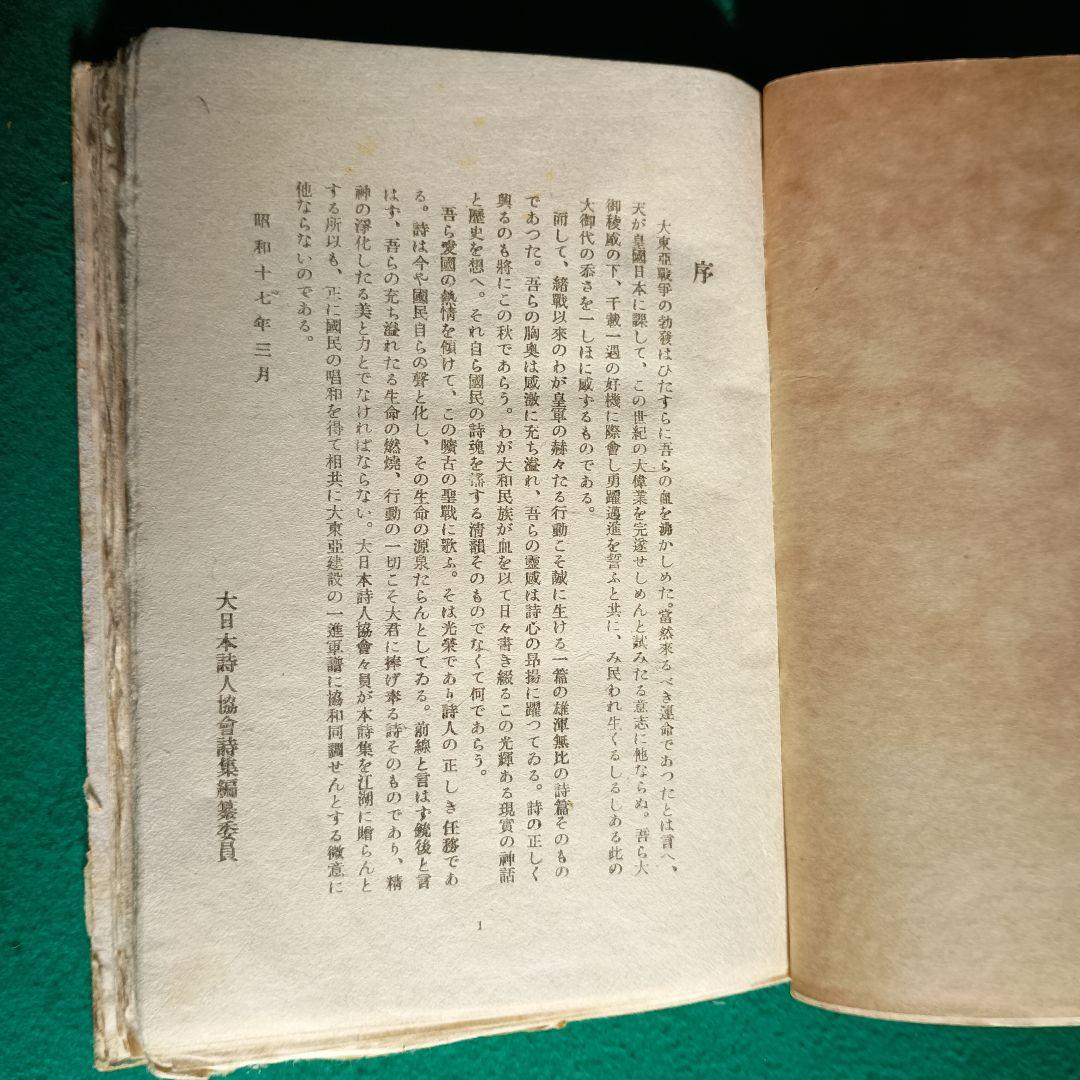 序
大東亞戰爭の勃發はひたすらに吾らの血を沸かしめた。當然來るべき運命であつたとは言へ、
天が皇國日本に課して、この世紀の大偉業を完遂せしめんと試みたる意志に他ならぬ。吾ら大
御稜威の下、千載一遇の好機に際會し勇躍邁進を誓ふと共に、み民われ生くるしるしある此の
大御代の忝さを一しほに感ずるものである。
而して、緒戰以來のわが皇軍の赫々たる行動こそ誠に生ける一篇の雄渾無比の詩篇そのもの
であつた。吾らの胸奥は感激に充ち溢れ、吾らの靈感は詩心の昻揚に躍つてゐる。詩の正しく
興るのも將にこの秋であらう。わが大和民族が血を以て日々書き綴るこの光輝ある現實の神話
と歷史を想へ。それ自ら國民の詩魂を謠する淸韻そのものでなくて何であらう。
吾ら愛國の熱情を傾けて、この曠古の聖戰に歌ふ。そは光榮であり詩人の正しき任務であ
る。詩は今や國民自らの聲と化し、その生命の源泉たらんとしてゐる。前線と言はず銃後と言
はず、吾らの充ち溢れたる生命の燃燒、行動の一切こそ大君に捧げ奉る詩そのものであり、精
神の淨化したる美と力とでなければならない。大日本詩人協會々員が本詩集を江湖に贈らんと
する所以も、正に國民の唱和を得て相共に大東亞建設の一進軍譜に協和同調せんとする微意に
他ならないのである。
昭和十七年三月
大日本詩人協會詩集編纂委員
1